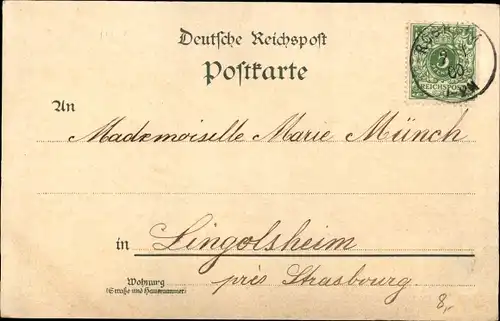 Deutsche Reichspost
Postkarte
5
REICHSPOST
An
Mademoiselle Marie Münch
in Lingolsheim
Wohnung
(Straße und Hausnummer)
près Strasbourg.
8,-